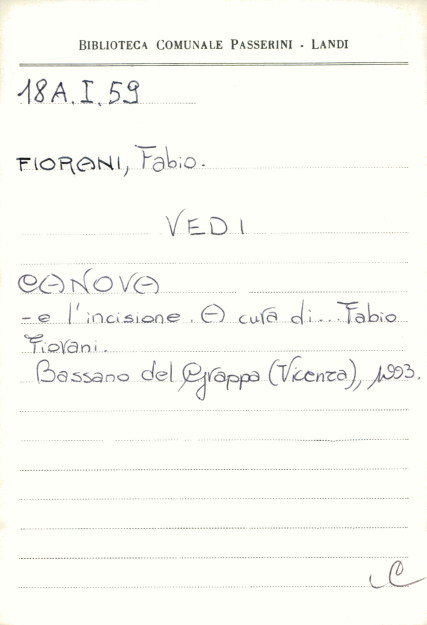 BIBLIOTECA COMUNALE PASSERINI - LANDI
18A.I.59
FIORANI, Fabio.
VEDI
CANOVA
- e l'incisione. A cura di... Fabio
Fiorani.
Bassano del Grappa (Vicenza), 1993.
C